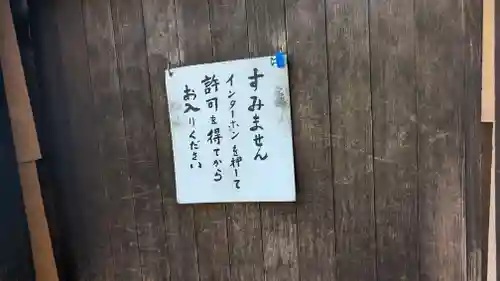 すみません
インターホンを押して
許可を得てから
お入りください